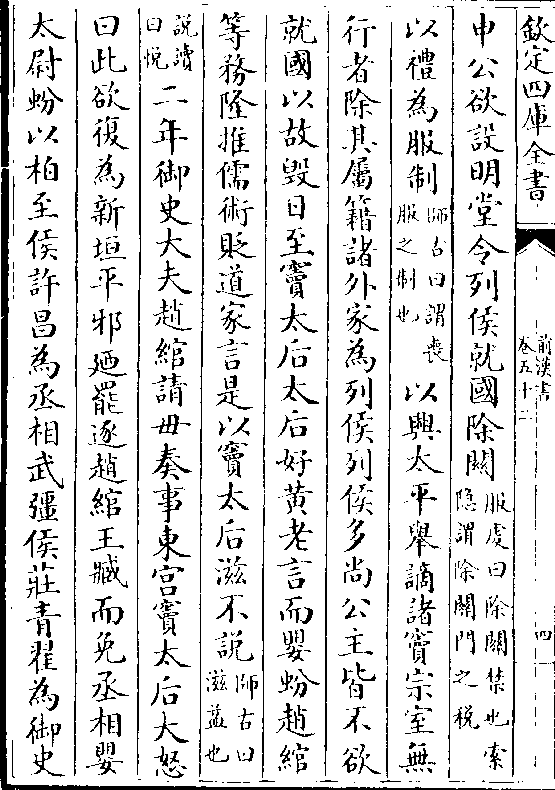 欽定四庫全書
前漢書
卷五十二
四
申公欲設明堂令列侯就國除關服虔曰除關禁也索
隐謂除關門之税
以禮為服制師古曰謂喪
服之制也以興太平舉謫諸竇宗室無
行者除其屬籍諸外家為列侯列侯多尚公主皆不欲
就國以故毁日至竇太后太后好黄老言而嬰蚡趙綰
等務隆推儒術貶道家言是以竇太后滋不説師古曰
滋益也
説讀
曰悦二年御史大夫趙綰請毋奏事東宫竇太后大怒
曰此欲復為新垣平邪廼罷逐趙綰王臧而免丞相嬰
太尉蚡以柏至侯許昌為丞相武彊侯莊青翟為御史